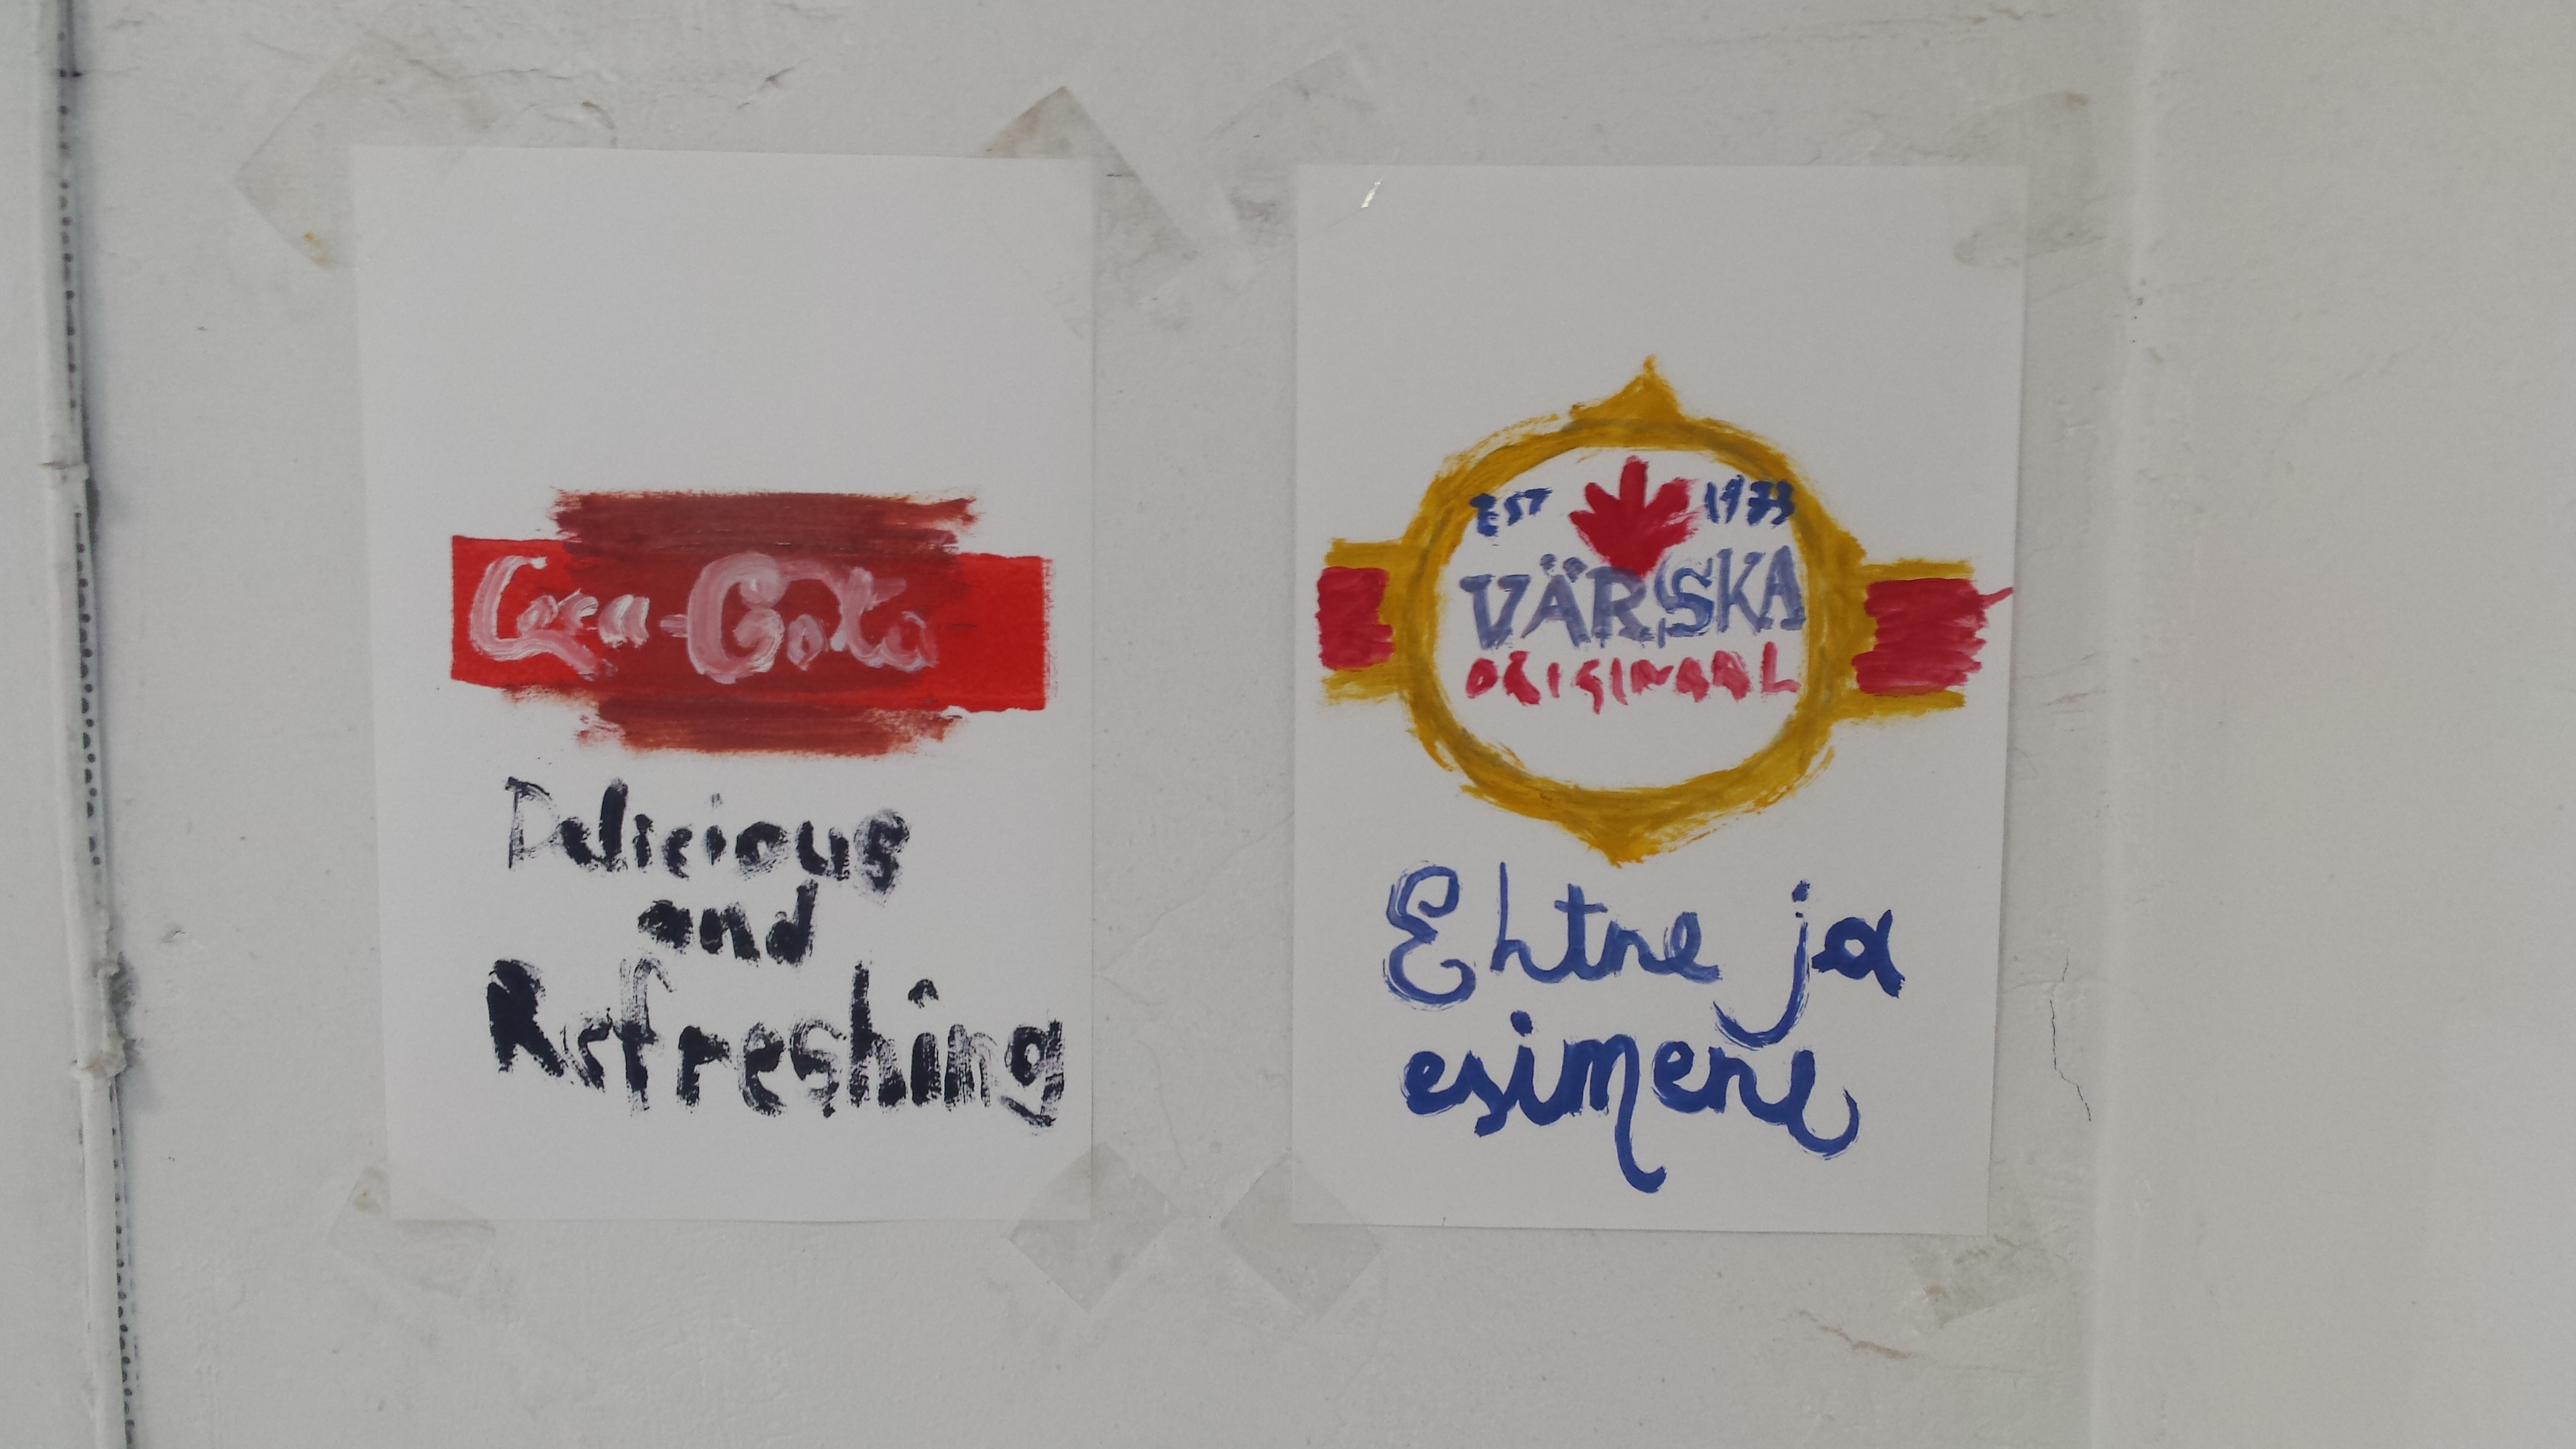 Coca-Cola
Delicious
and
Refreshing
EST 1973
VÄRSKA
ORIGINAAL
Ehtne ja
esimene